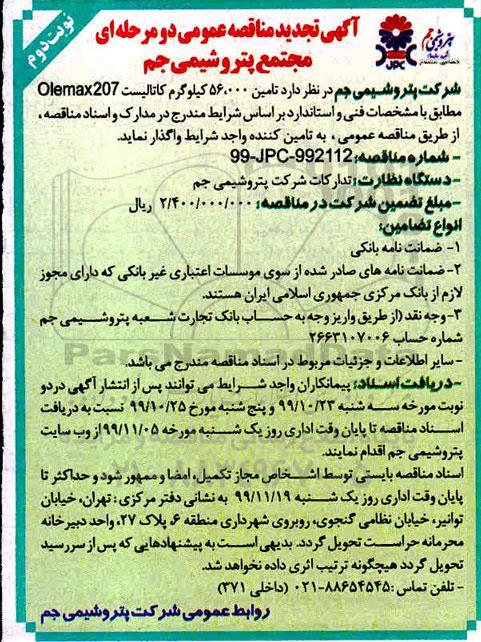 نوبت دوم
آگهی تجدید مناقصه عمومی دو مرحله‌ای
مجتمع پتروشیمی جم
پتروشیمی جم
JPC
شرکت پتروشیمی جم در نظر دارد تامین ۵۶،۰۰۰ کیلوگرم کاتالیست Olemax207
مطابق با مشخصات فنی و استاندارد بر اساس شرایط مندرج در مدارک و اسناد مناقصه ،
از طریق مناقصه عمومی ، به تامین کننده واجد شرایط واگذار نماید.
- شماره مناقصه: 99-JPC-992112
- دستگاه نظارت: تدارکات شرکت پتروشیمی جم
- مبلغ تضمین شرکت در مناقصه: ۲/۴۰۰/۰۰۰/۰۰۰ ریال
انواع تضامین:
۱- ضمانت نامه بانکی
۲- ضمانت نامه های صادر شده از سوی موسسات اعتباری غیر بانکی که دارای مجوز
لازم از بانک مرکزی جمهوری اسلامی ایران هستند.
۳- وجه نقد (از طریق واریز وجه به حساب بانک تجارت شعبه پتروشیمی جم
شماره حساب ۲۶۶۳۱۰۷۰۰۶
- سایر اطلاعات و جزئیات مربوط در اسناد مناقصه مندرج می باشد.
- دریافت اسناد: پیمانکاران واجد شرایط می توانند پس از انتشار آگهی در دو
نوبت مورخه سه شنبه ۹۹/۱۰/۲۳ و پنج شنبه مورخ ۹۹/۱۰/۲۵ نسبت به دریافت
اسناد مناقصه تا پایان وقت اداری روز یک شنبه مورخه ۹۹/۱۱/۰۵ از وب سایت
پتروشیمی جم اقدام نمایند.
اسناد مناقصه بایستی توسط اشخاص مجاز تکمیل، امضا و ممهور شود و حداکثر تا
پایان وقت اداری روز یک شنبه ۹۹/۱۱/۱۹ به نشانی دفتر مرکزی : تهران، خیابان
توانیر، خیابان نظامی گنجوی، روبروی شهرداری منطقه ۶، پلاک ۲۷، واحد دبیرخانه
محرمانه حراست تحویل گردد. بدیهی است به پیشنهادهایی که پس از سررسید
تحویل گردد هیچگونه ترتیب اثری داده نخواهد شد.
- تلفن تماس :۸۸۶۵۴۵۴۵-۰۲۱ (داخلی ۳۷۱)
روابط عمومی شرکت پتروشیمی جم